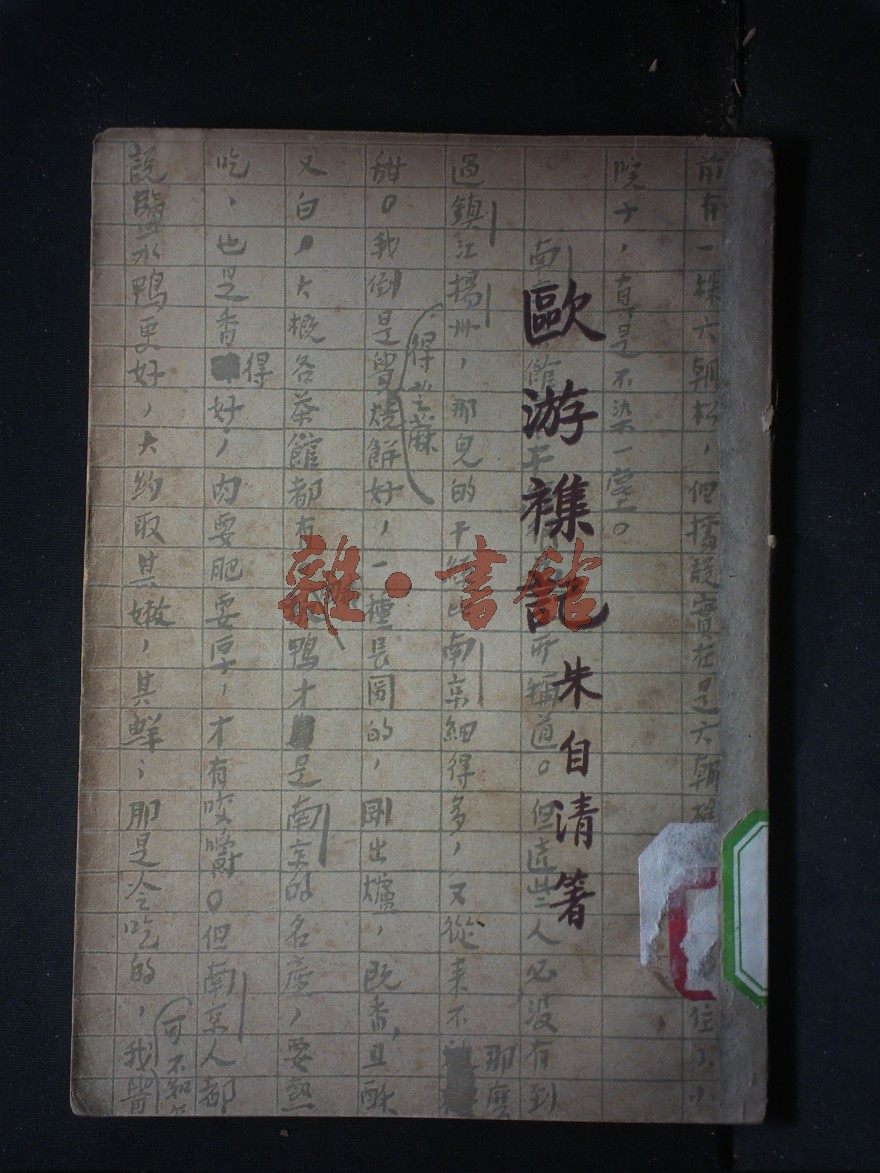 歐游襍記
朱自清著
雜·書舘
前有一株六朝松,但據說實在是六朝
住了小
院子,真是不染一塵。
南
館
所稱道。但這些人必沒有到
過鎮江揚州,那兒的干絲比南京細得多,又從來不
那麼
甜。我倒是覺
得芝麻
燒餅好,一種長圓的,剛出爐,既香,且酥
又白,大概各茶館都有。
鴨才是南京的名產,要熱
吃,也是香得好;肉要肥要厚,才有咬嚼。但南京人都
說鹽水鴨更好,大約取其嫩,其鮮;那是冷吃的,我
可不知